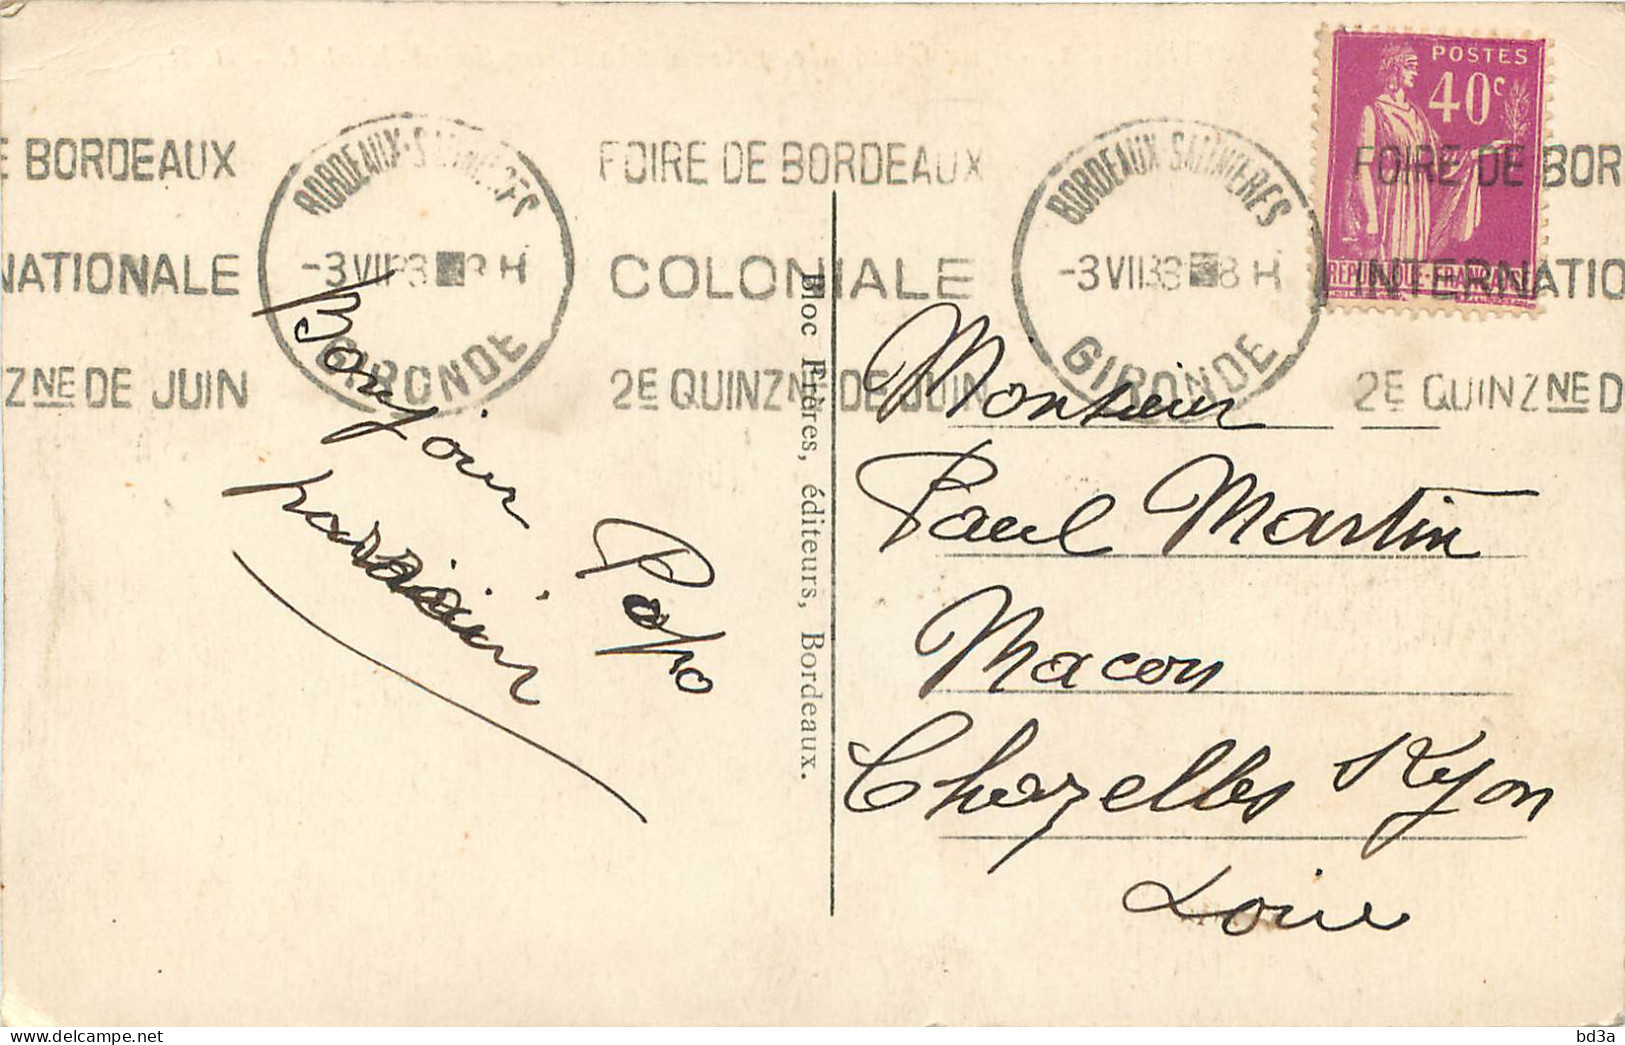 E BORDEAUX
NATIONALE
ZNE DE JUIN
BORDEAUX-SALINIERES
-3 VII 33 8 H
GIRONDE
FOIRE DE BORDEAUX
COLONIALE
2E QUINZNE DE JUIN
BORDEAUX SALINIERES
-3 VII 33 8 H
GIRONDE
POSTES
40c
REPUBLIQUE-FRANÇAISE
FOIRE DE BOR
INTERNATIO
2E QUINZNE D
Bonjour Popo
parrain
Bloc Frères, éditeurs, Bordeaux.
Monsieur
Paul Martin
Macon
Chazelles s/Lyon
Loire
bd3a